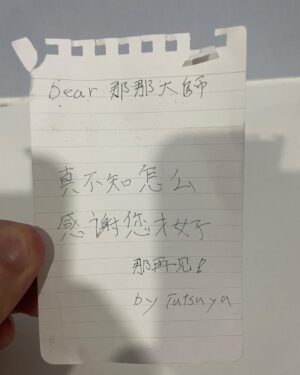 Dear 那那大師
真不知怎么
感谢您才好
那再见!
by Tatsuya